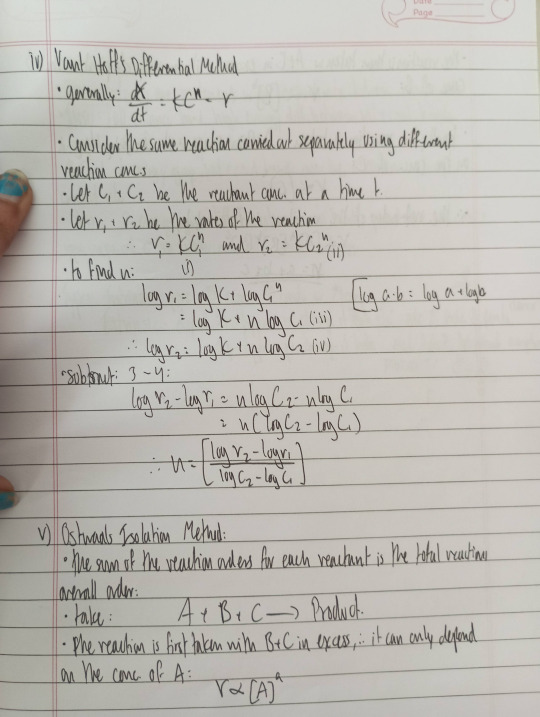 Date
Page
iv) Vant Hoff's Differential Method
• generally: dx/dt = kCⁿ = r
• Consider the same reaction carried out separately using different
reaction concs
• Let C₁ + C₂ be the reactant conc. at a time t.
• Let r₁ + r₂ be the rates of the reaction
∴ r₁ = kC₁ⁿ and r₂ = kC₂ⁿ (ii)
(i)
• to find n:
log r₁ = log K + log C₁ⁿ [log a·b = log a + log b
= log K + n log C₁ (iii)
∴ log r₂ = log K + n log C₂ (iv)
• subtract: 3 - 4:
log r₂ - log r₁ = n log C₂ - n log C₁
= n (log C₂ - log C₁)
∴ n = [log r₂ - log r₁ / log C₂ - log C₁]
v) Ostwalds Isolation Method:
• The sum of the reaction orders for each reactant is the total reaction
overall order:
• take: A + B + C → Product.
• The reaction is first taken with B+C in excess, ∴ it can only depend
on the conc of A:
r ∝ [A]ᵃ